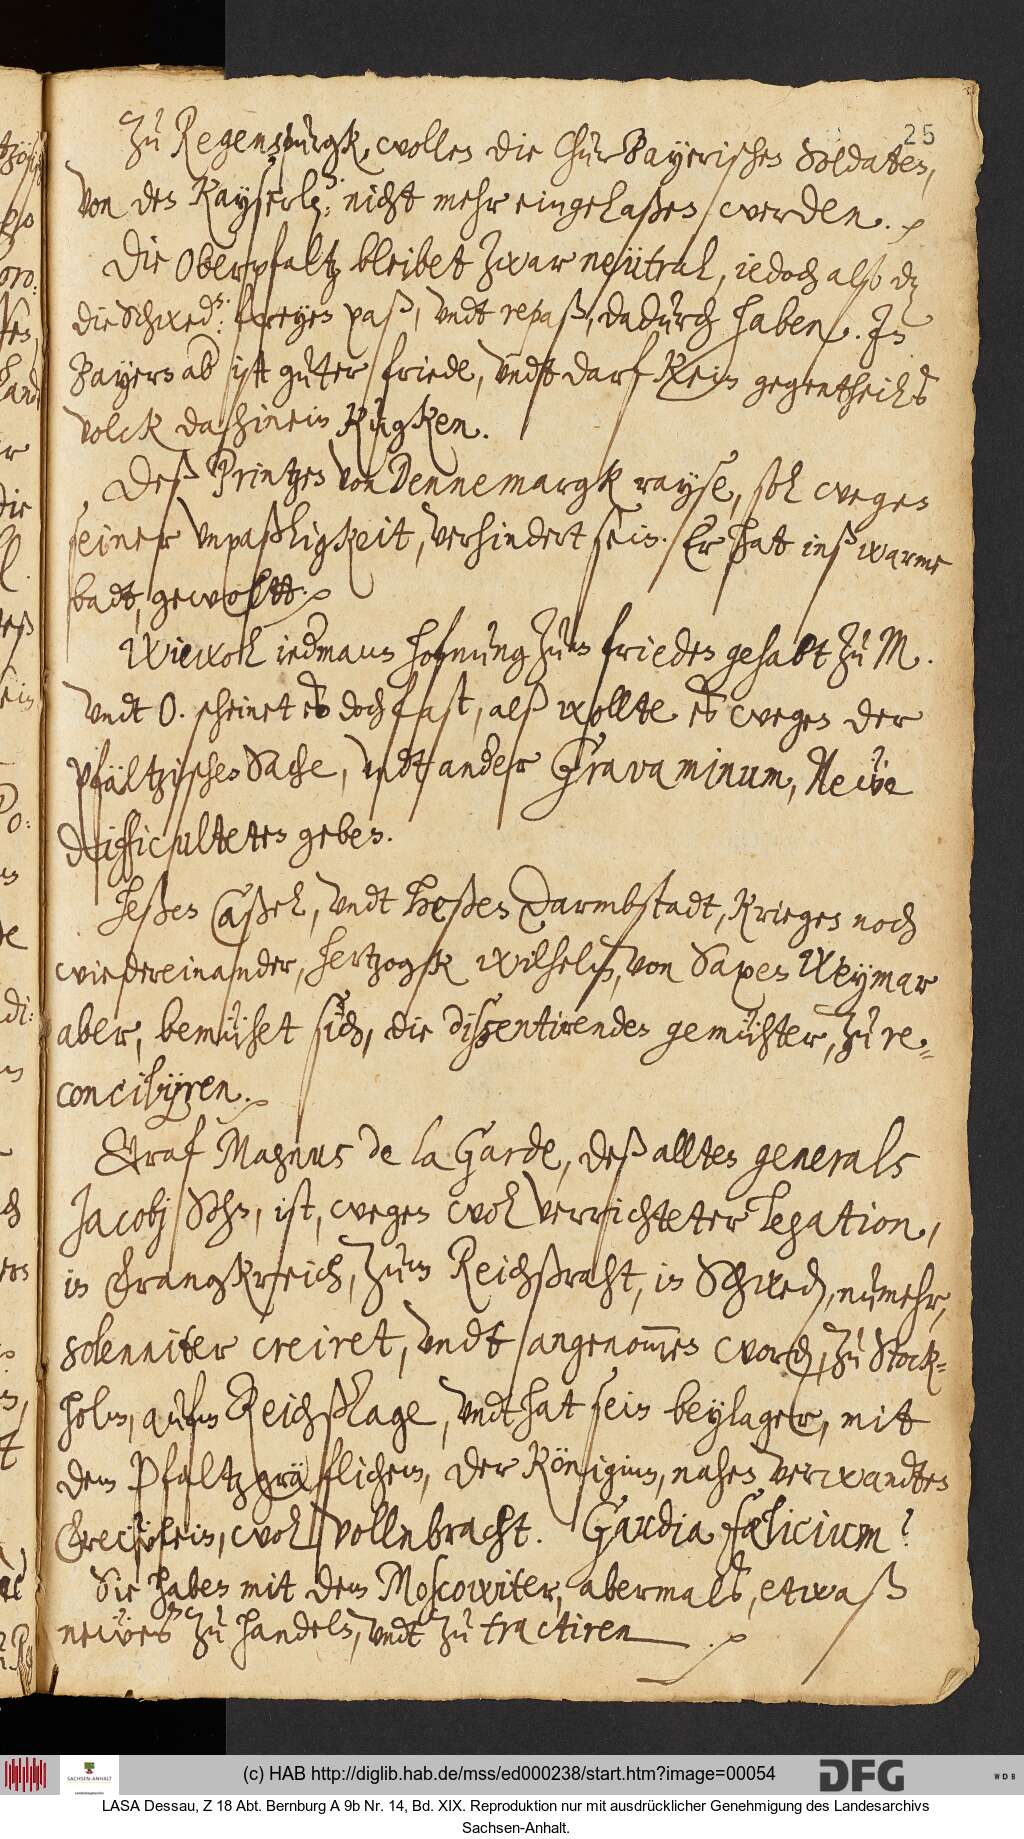 25
Zu Regenspurgk, wollen die ChurBayerischen Soldaten,
von den Kayserl: nicht mehr eingelaßen werden.
Die OberPfaltz bleibet zwar neütral, iedoch also dz
die Schwed: freyen paß, undt repaß, dadurch haben. In
Bayern ab ist guter friede, undt darf kein gegentheils
volck dahinein rügken.
Deß Printzen von Dennemargk rayse, sol wegen
seiner unpaßligkeit, verhindert sein. Er hat inß warme
badt, gewollt.
Wiewol iedman hofnung zum frieden gehabt zu M.
undt O. scheinet es doch fast, alß wollte es wegen der
Pfältzischen Sache, undt ander Gravaminum, Neüe
difficulteten geben.
Heßen Caßel, undt Heßen Darmbstadt, kriegen noch
wiedereinander, Hertzogk Wilhelm, von Saxen Weymar
aber, bemühet sich, die dissentirenden gemühter, zu re-
conciliiren.
Graf Magnus de la Garde, deß allten generals
Jacobj Sohn, ist, wegen wol verrichteter Legation,
in Franckreich, zum Reichßraht, in Schwed, numehr,
solenniter creiret, undt angenommen word, zu Stock-
holm, aufm Reichßtage, undt hat sein beylager, mit
dem Pfaltzgräflichem, der Königinn, nahen verwandten
Frewlein, wol vollnbracht. Gaudia fœlicium?
Sie haben mit dem Moscowiter, abermals, etwaß
newes zu handeln, undt zu tractiren
(c) HAB http://diglib.hab.de/mss/ed000238/start.htm?image=00054
SACHSEN-ANHALT
DFG
WDB
LASA Dessau, Z 18 Abt. Bernburg A 9b Nr. 14, Bd. XIX. Reproduktion nur mit ausdrücklicher Genehmigung des Landesarchivs
Sachsen-Anhalt.